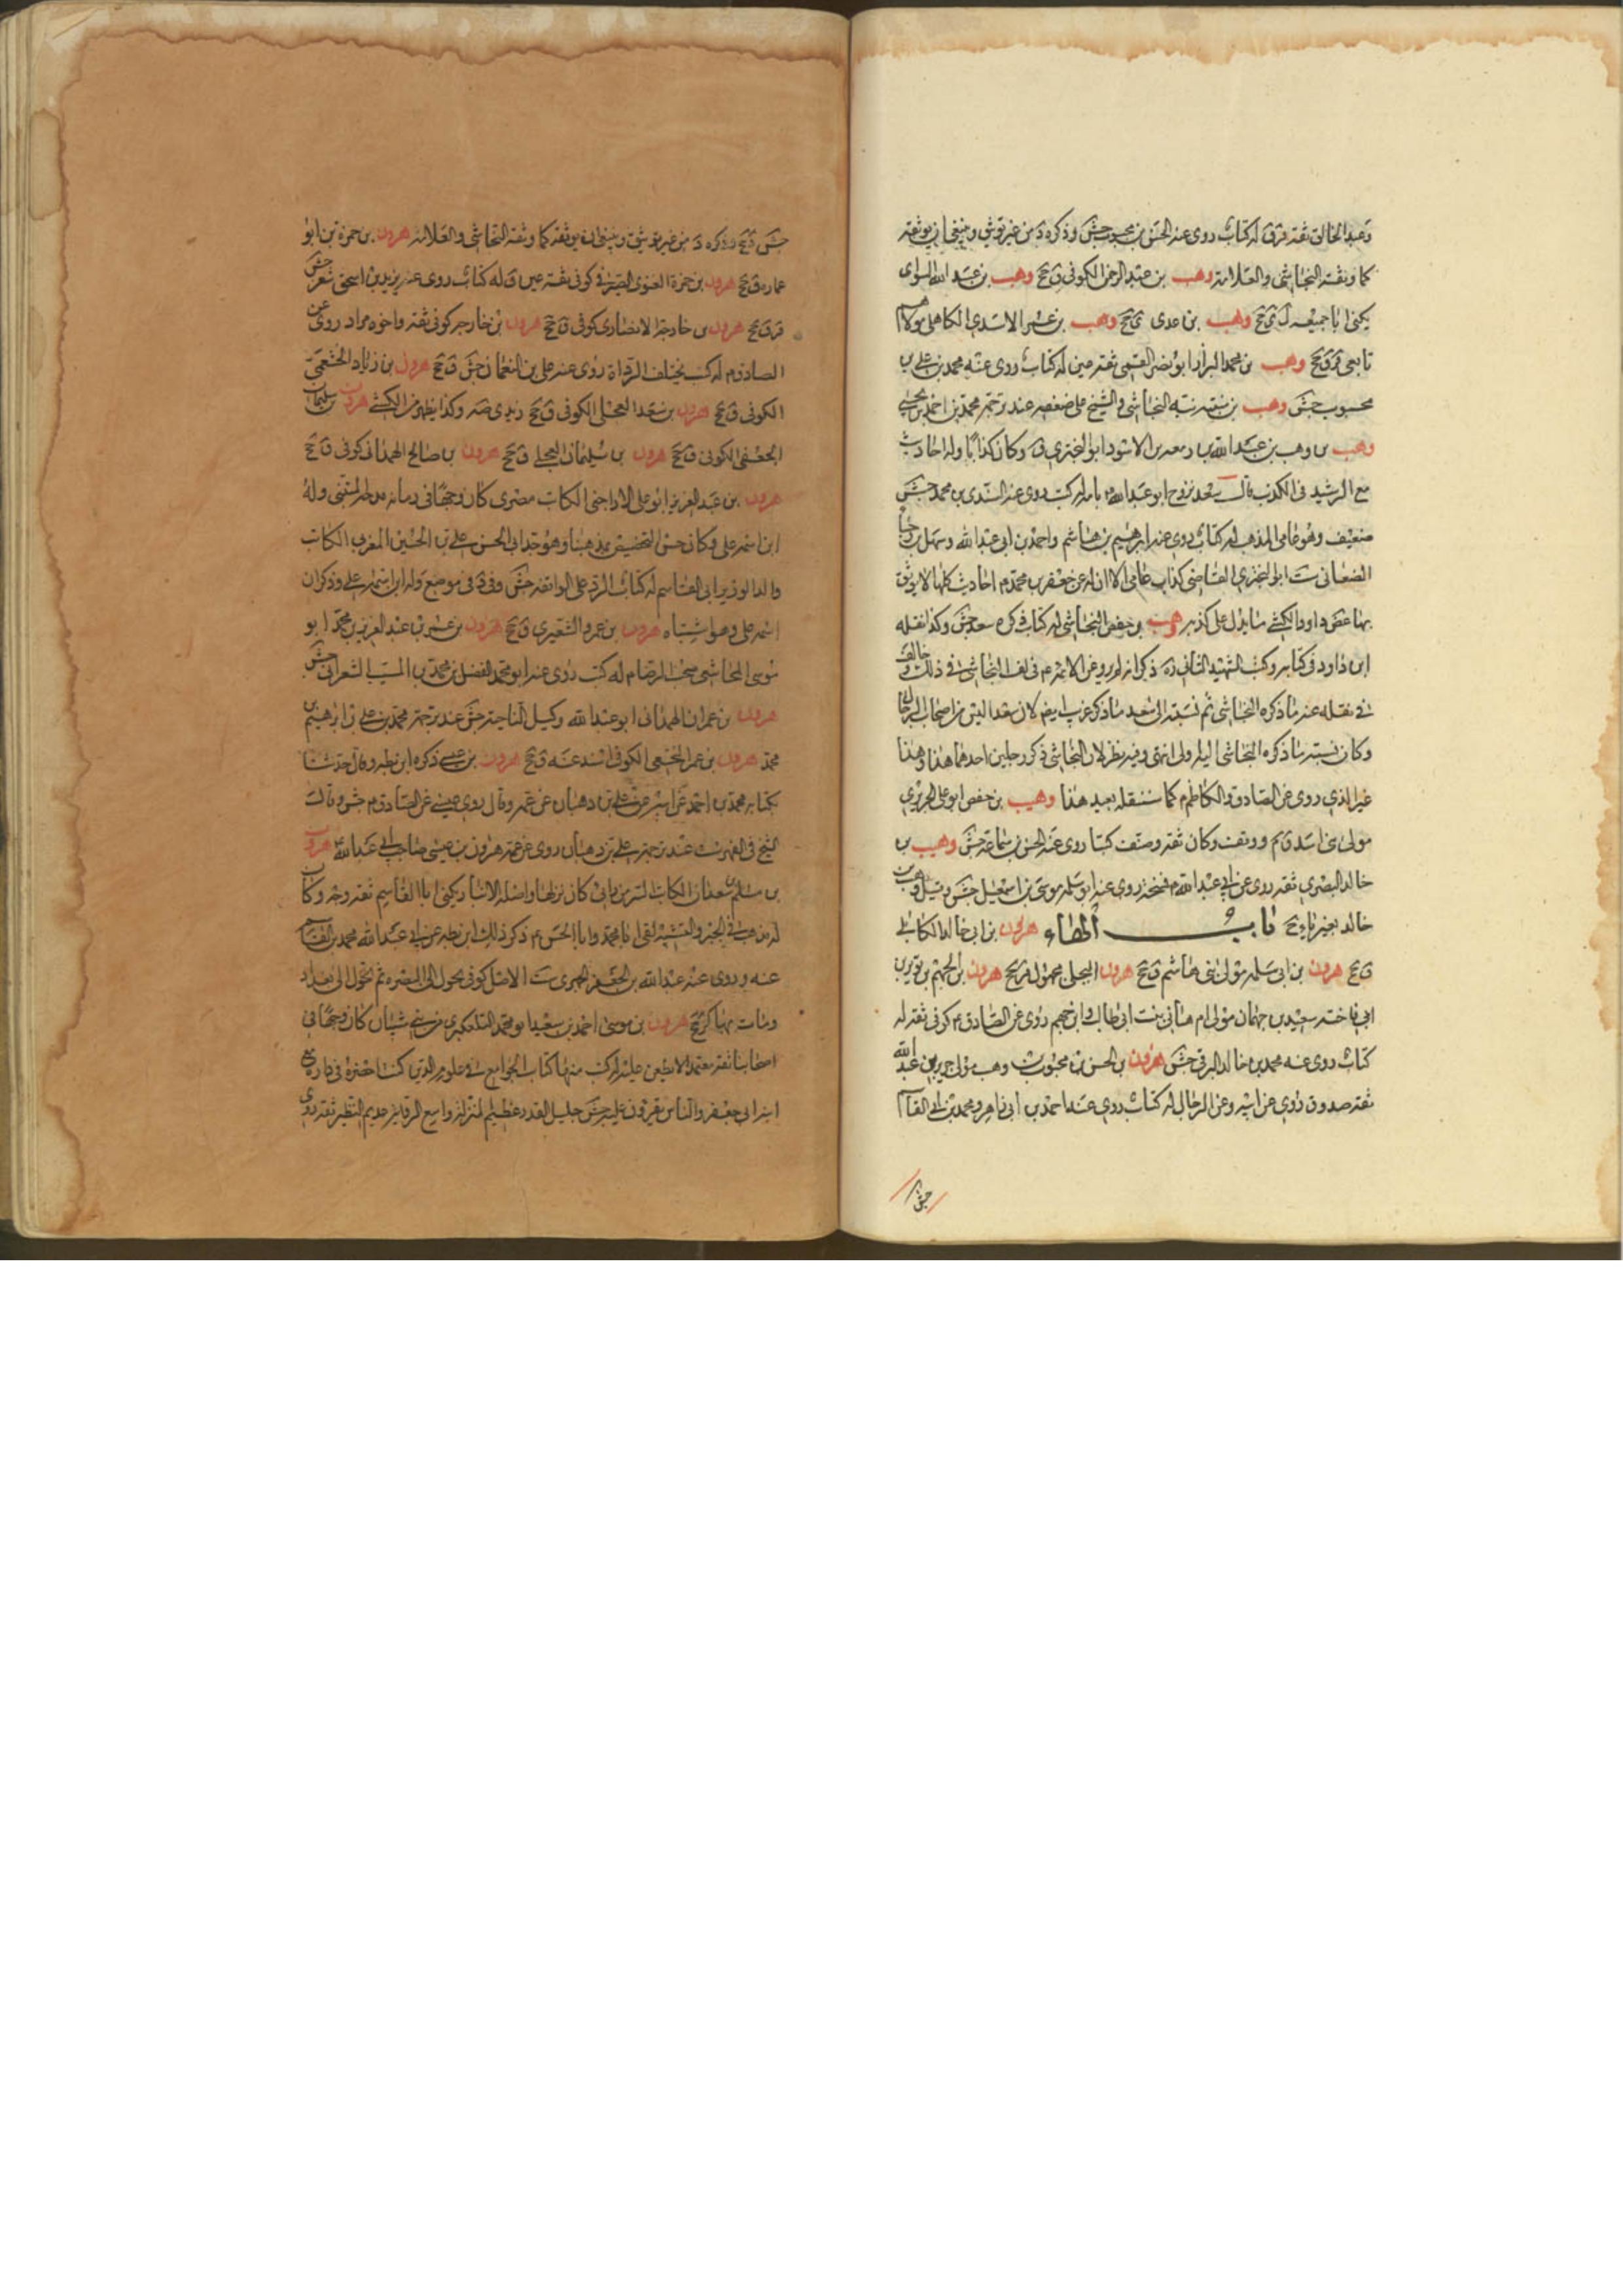 وعبد الخالق ثقة قر ق له كتاب روى عنه الحسن بن محبوب جش وذكره د من غير توثيق وينبغي ان يوثقه
كما وثقه النجاشي والعلامة وهب بن عبد الرحمن الكوفي ق جخ وهب بن عبد الله السوائي
يكنى ابا جحيفة ل ي جخ وهب بن عدي ي جخ وهب بن عمرو الاسدي الكاهلي مولاهم
تابعي قر ق جخ وهب بن محمد البزاز ابو نصر القمي ثقة عين له كتاب روى عنه محمد بن علي بن
محبوب جش وهب بن منبه النجاشي والشيخ على ضعفه عند ترجمة محمد بن احمد بن يحيى
وهب بن وهب بن عبد الله بن زمعة بن الاسود ابو البختري ق وكان كذابا وله احاديث
مع الرشيد في الكذب قال سعد تزوج ابو عبد الله ع بامه له كتب روى عنه السندي بن محمد جش
ضعيف وهو عامي المذهب له كتاب روى عنه ابرهيم بن هاشم واحمد بن ابي عبد الله وسهل بن رجا
الصنعاني ست ابو البختري القاضي كذاب عامي الا ان له عن جعفر بن محمد م احاديث كلها لا يوثق
بها غض د اورد الكشي ما يدل على كذبه وهيب بن حفص النجاشي له كتاب ذكره سعد جش وكذا نقله
ابن داود في كتابه وكتب الشهيد الثاني ره ذكر انه لم يرو عن الائمة م في لف النجاشي في ذلك وخالف
في نقله عنه ما ذكره النجاشي ثم نسبته الى سعد ما ذكر غريب ايضا لان سعدا ليس من اصحاب الرجال
وكان نسبة ما ذكره النجاشي اليه اولى انتهى وفيه نظر لان النجاشي ذكر رجلين احدهما هذا وهذا
غير الذي روى عن الصادق والكاظم م كما سننقله بعيد هذا وهيب بن حفص ابو علي الجريري
مولى بني اسد ق م ووقف وكان ثقة وصنف كتبا روى عنه الحسن بن سماعة جش وهيب بن
خالد البصري ثقة روى عن ابي عبد الله م نسخة روى عنه ابو سلمة موسى بن اسمعيل جش وقيل وهب بن
خالد بغير ياء ق جخ باب الهاء هرون بن ابي خالد الكابلي
ق جخ هرون بن ابي سلمة مولى بني هاشم ق جخ هرون البجلي مجهول قر جخ هرون بن الجهم بن ثوير بن
ابي فاخته سعيد بن جهمان مولى ام هاني بنت ابي طالب وابن جهم روى عن الصادق م كوفي ثقة له
كتاب روى عنه محمد بن خالد البرقي جش هرون بن الحسن بن محبوب بن وهب مولى جرير بن عبد الله
ثقة صدوق روى عن ابيه وعن الرجال له كتاب روى عنه احمد بن ابي زاهر ومحمد بن ابي القاسم
جش
جش د جخ وذكره د من غير توثيق وينبغي ان يوثقه كما وثقه النجاشي والعلامة هرون بن حمزة بن ابو
عمارة ق جخ هرون بن حمزة الغنوي الصيرفي كوفي ثقة عين ق له كتاب روى عنه يزيد بن اسحق شعر جش
قر ق جخ هرون بن خارجة الانصاري كوفي ق جخ هرون بن خارجة كوفي ثقة واخوه مراد روى عن
الصادق م له كتب تختلف الرواة روى عنه علي بن النعمان جش ق جخ هرون بن زياد الخثعمي
الكوفي ق جخ هرون بن سعد العجلي الكوفي ق جخ زيدي صه وكذا يظهر من الكشي هرون بن سليمان
الجعفي الكوفي ق جخ هرون بن سليمان البجلي ق جخ هرون بن صالح الهمداني كوفي ق جخ
هرون بن عبد العزيز ابو علي الاراجني الكاتب مصري كان وجها في زمانه مدحه المتنبي وله
ابن اسمه علي وكان حسن التخصيص بمذهبنا وهو جد ابي الحسن علي بن الحسين المغربي الكاتب
والد الوزير ابي القاسم له كتاب الرد على الواقفة جش وفي د في موضع وله ابن اسمه علي وذكر ان
اسمه علي وهو اشتباه هرون بن عمرو الشعيري ق جخ هرون بن عمر بن عبد العزيز بن محمد ابو
موسى المجاشعي صحب الرضا م له كتب روى عنه ابو محمد الفضل بن محمد بن المسيب الشعراني جش
هرون بن عمران الهمداني ابو عبد الله وكيل الناحية جش عند ترجمة محمد بن علي بن ابرهيم بن
محمد هرون بن عمر الخثعمي الكوفي اسند عنه ق جخ هرون بن عيسى ذكره ابن بطة وقال حدثنا
بكتابه محمد بن احمد عن ابيه عن علي بن دهبان عن عمه وقال روى عيسى عن الصادق م جش وقال
الشيخ في الفهرست عند ترجمة علي بن دهبان روى عن عمه هرون بن عيسى صاحب ابي عبد الله ع هرون
بن مسلم بن سعدان الكاتب السر من رائي كان نزلها واصله الانبار يكنى ابا القاسم ثقة وجه وكان
له مذهب في الجبر والتشبيه لقي ابا محمد وابا الحسن م ذكر ذلك ابن بطة عن ابي عبد الله محمد بن القاسم
عنه وروى عنه عبد الله بن جعفر الحميري ست الاصل كوفي تحول الى البصرة ثم تحول الى بغداد
ومات بها كر جخ هرون بن موسى احمد بن سعيد ابو محمد التلعكبري من بني شيبان كان وجها في
اصحابنا ثقة معتمدا لا يطعن عليه له كتب منها كتاب الجوامع في علوم الدين كنت احضره في داره مع
ابنه ابي جعفر والناس يقرؤن عليه جش جليل القدر عظيم المنزلة واسع الرواية عديم النظير ثقة روى